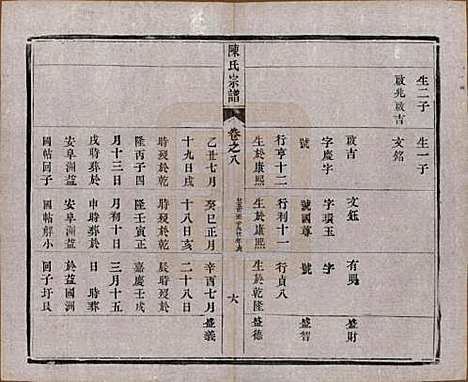 生二子
啟兆啟吉
生一子
文銘
啟吉
字慶字
行亨十二
生於康熙
文鈺
字璜玉
號國尊
行利十一
生於康熙
有賜
字
號
行貞八
生於乾隆
盛財
盛智
盛德
陳氏宗譜
卷之八
六
乙丑七月
十九日戌
時歿於乾
隆丙子四
月十三日
戌時葬於
安阜洲益
國帖囙子
癸巳正月
十八日亥
時歿於乾
隆壬寅正
月初十日
申時葬於
安阜洲益
國帖解小
辛酉七月
二十八日
時歿於
嘉慶壬戌
三月十五
日 時葬
於益國洲
囙子圩艮
盛義